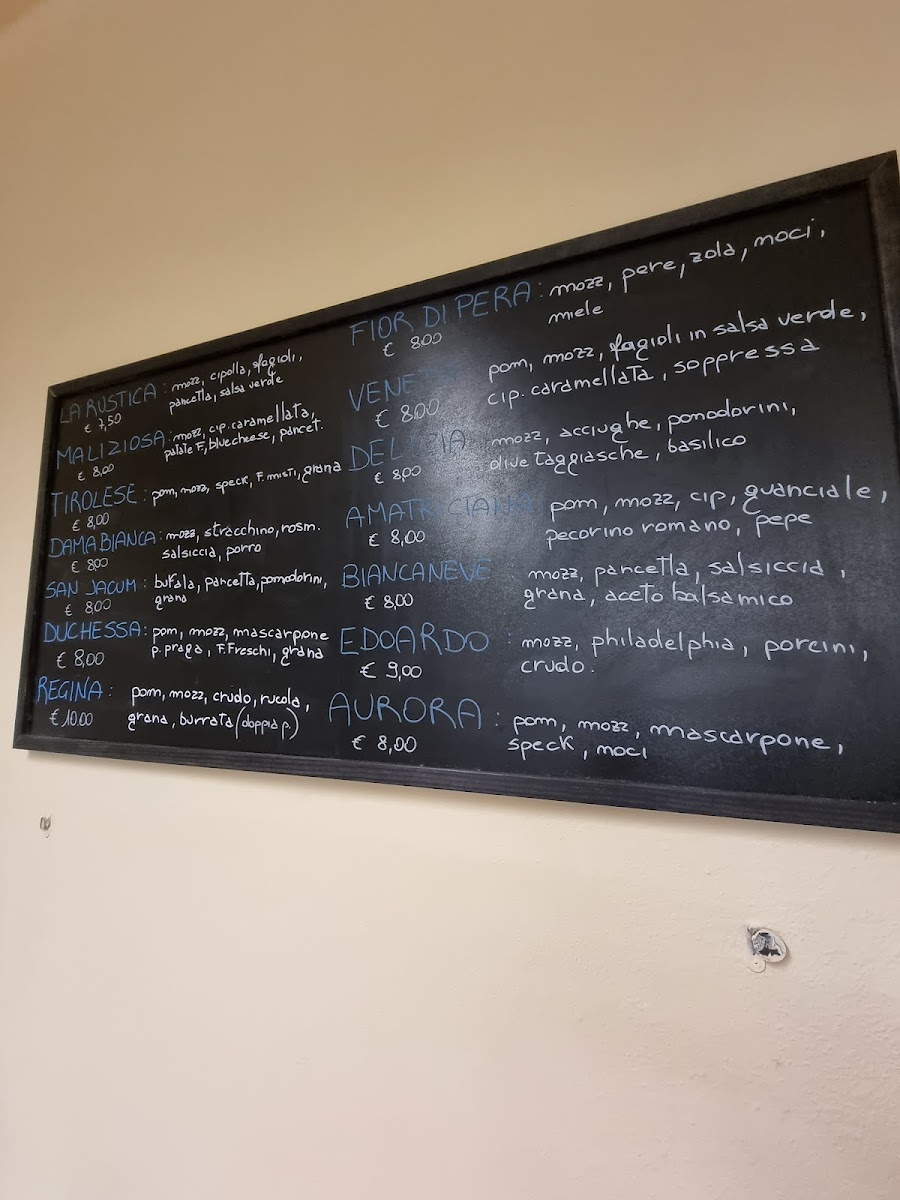 LA RUSTICA : mozz, cipolla, fagioli,
€ 7,50 pancetta, salsa verde
MALIZIOSA : mozz, cip. caramellata,
€ 8,00 patate F, bluechese, pancet.
TIROLESE : pom, mozz, speck, F. misti, grana
€ 8,00
DAMA BIANCA : mozz, stracchino, rosm.
€ 8,00 salsiccia, porro
SAN JACUM : bufala, pancetta, pomodorini,
€ 8,00 grana
DUCHESSA : pom, mozz, mascarpone
€ 8,00 p. praga, F. Freschi, grana
REGINA : pom, mozz, crudo, rucola,
€ 10.00 grana, burrata (doppia p.)
FIOR DI PERA : mozz, pere, zola, moci,
€ 8,00 miele
pom, mozz, fagioli in salsa verde,
€ 8,00 cip. caramellata, soppressa
DELIZIA mozz, acciughe, pomodorini,
€ 8,00 olive taggiasche, basilico
AMATRICIANA pom, mozz, cip, guanciale,
€ 8,00 pecorino romano, pepe
BIANCANEVE mozz, pancetta, salsiccia,
€ 8,00 grana, aceto balsamico
EDOARDO : mozz, philadelphia, porcini,
€ 9,00 crudo.
AURORA : pom, mozz, mascarpone,
€ 8,00 speck, moci